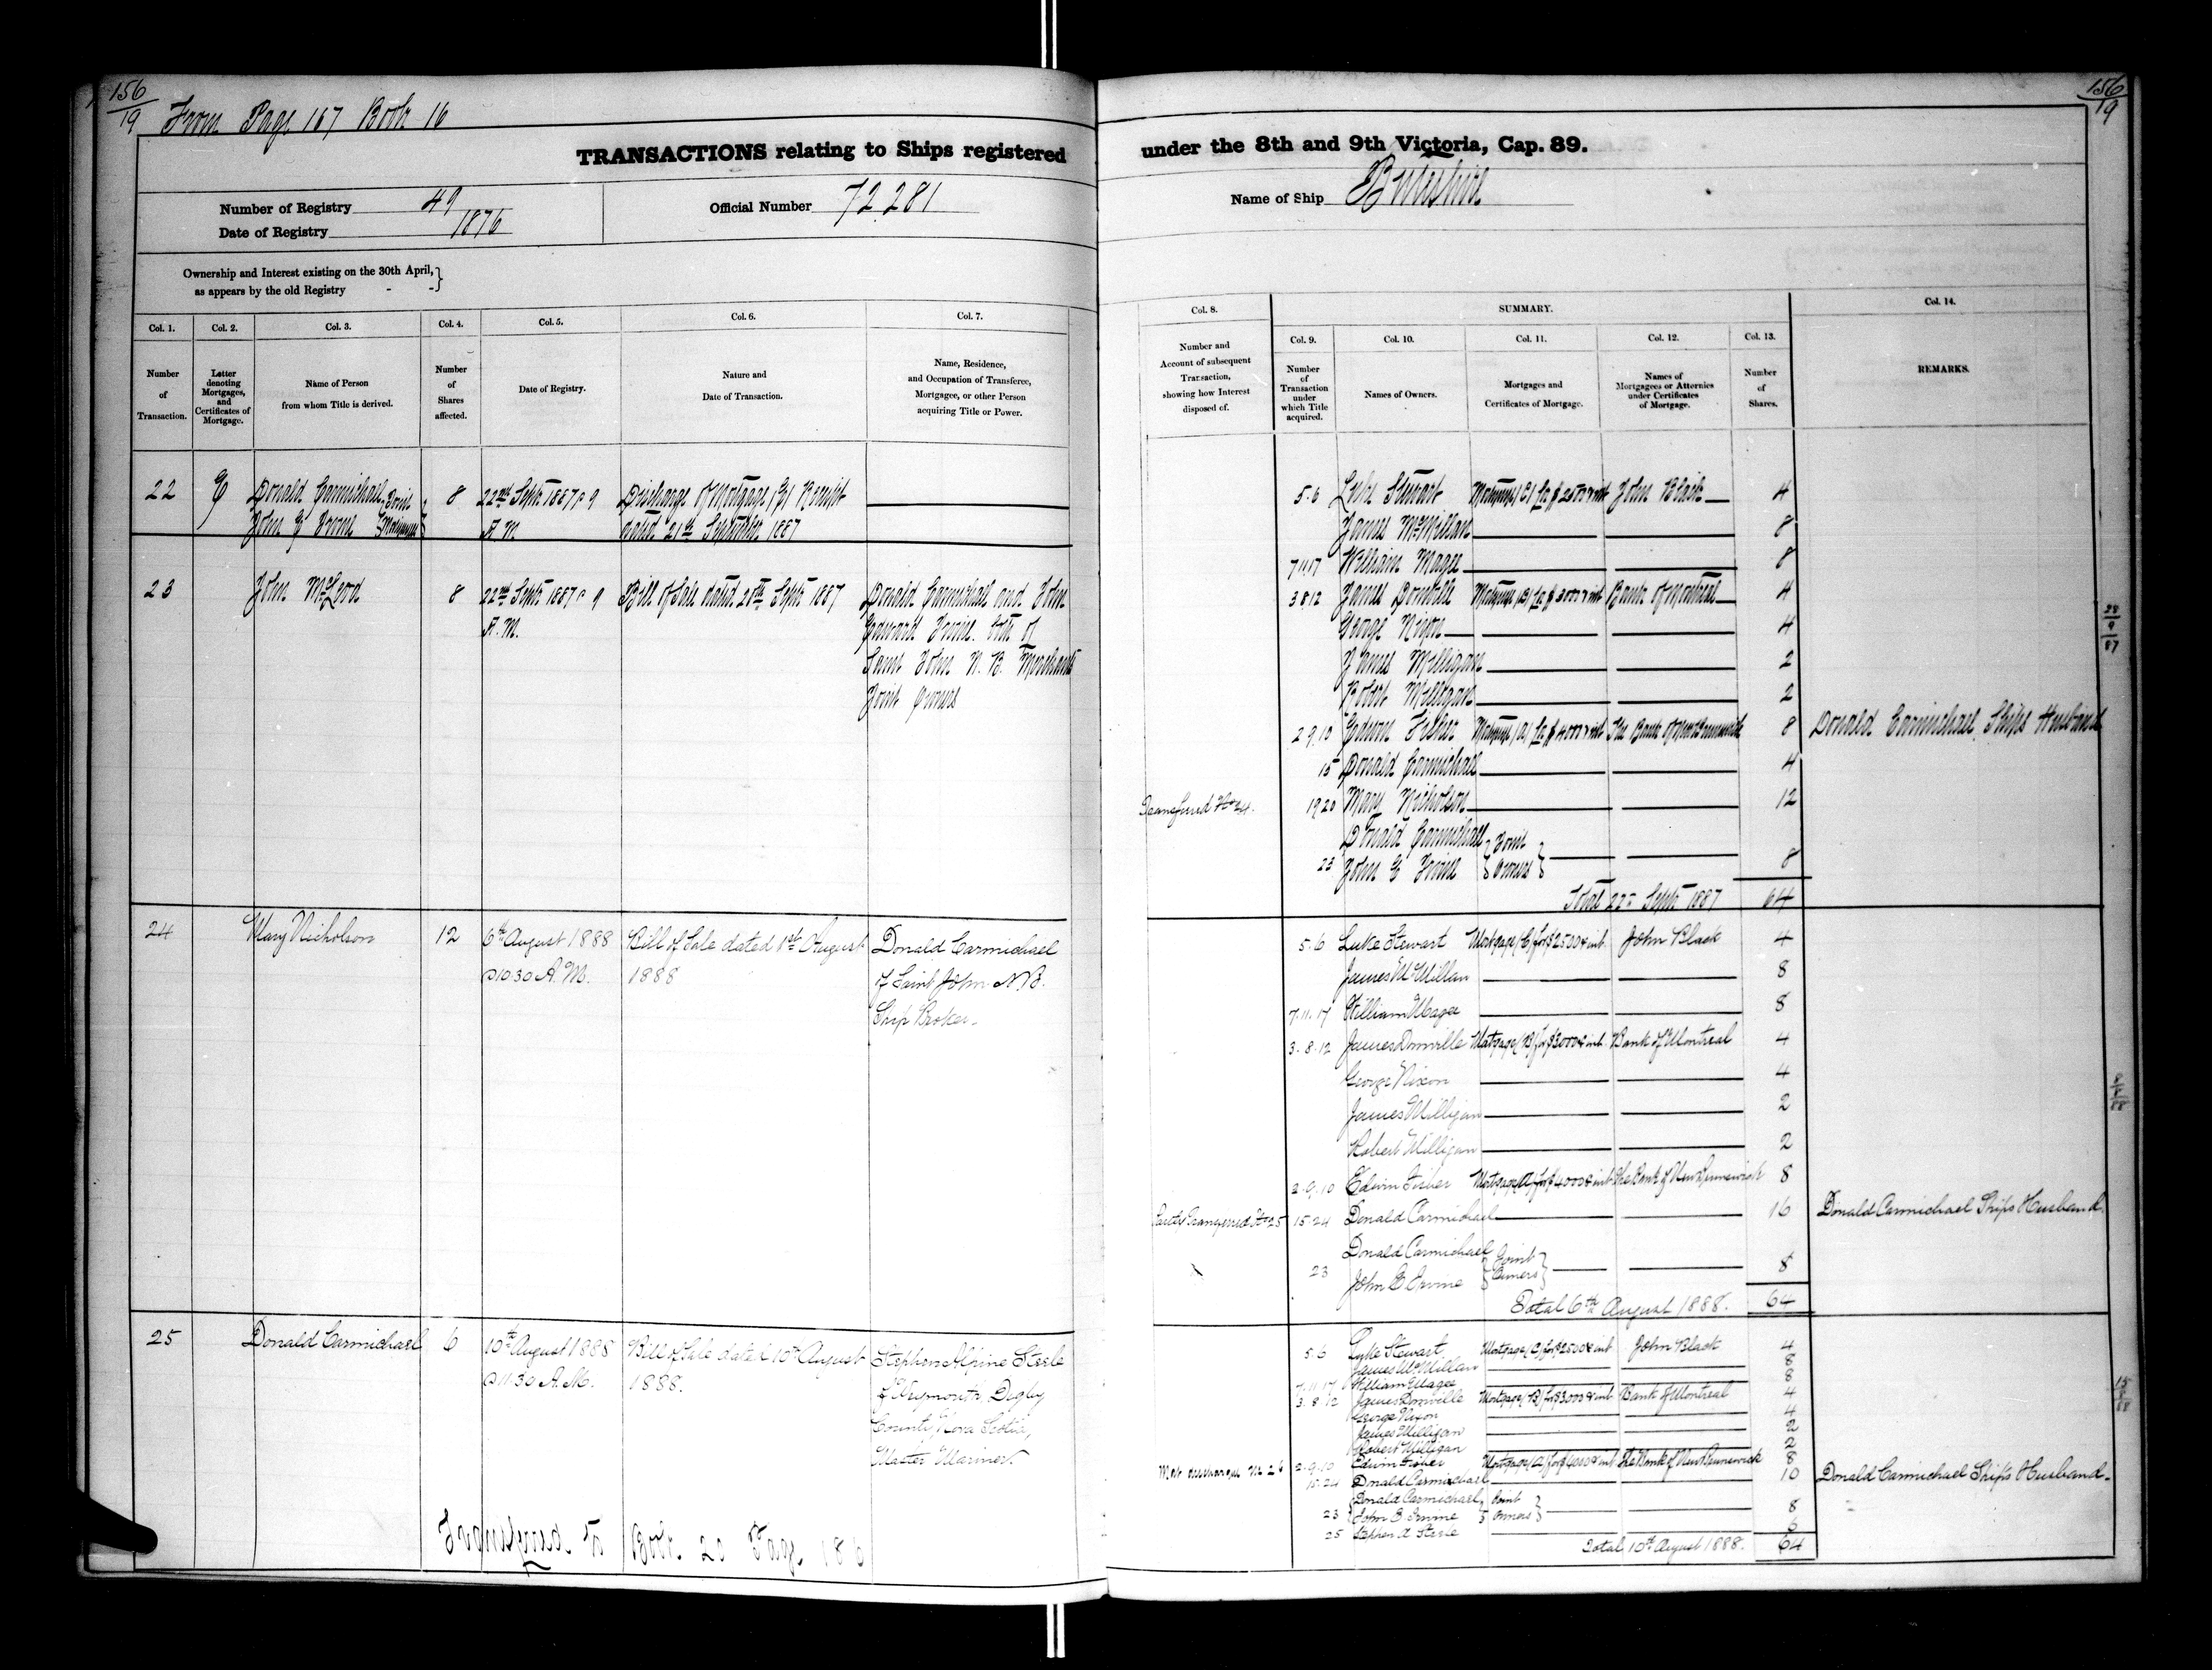 156/19 From Page 167 Book 16
TRANSACTIONS relating to Ships registered
Number of Registry 49/1876
Date of Registry
Official Number 72.281
Ownership and Interest existing on the 30th April,
as appears by the old Registry - -
Col. 1. Col. 2. Col. 3. Col. 4. Col. 5. Col. 6. Col. 7.
Number of Transaction.
Letter denoting Mortgages, and Certificates of Mortgage.
Name of Person from whom Title is derived.
Number of Shares affected.
Date of Registry.
Nature and Date of Transaction.
Name, Residence, and Occupation of Transferee, Mortgagee, or other Person acquiring Title or Power.
22 Donald Carmichael Joint 8 22nd Sept 1887 @ 9 Discharge of Mortgage (E) Receipt
John E Irvine Mortgagees A.M. dated 21st September 1887
23 John McLeod 8 22nd Sept 1887 @ 9 Bill of Sale dated 20th Sept 1887 Donald Carmichael and John
A.M. Edward Irvine both of
Saint John N.B. Merchants
Joint Owners
24 Mary Nicholson 12 6th August 1888 Bill of Sale dated 1st August Donald Carmichael
@ 10.30 A.M. 1888 of Saint John N.B.
Ship Broker.
25 Donald Carmichael 6 10th August 1888 Bill of Sale dated 10th August Stephen Alpine Steele
@ 11.30 A.M. 1888. of Weymouth, Digby
County, Nova Scotia,
Master Mariner
Transferred to Book 20 Page 186
156/19
under the 8th and 9th Victoria, Cap. 89.
Name of Ship Buteshire
Col. 8. SUMMARY. Col. 14.
Col. 9. Col. 10. Col. 11. Col. 12. Col. 13.
Number and Account of subsequent Transaction, showing how Interest disposed of.
Number of Transaction under which Title acquired.
Names of Owners.
Mortgages and Certificates of Mortgage.
Names of Mortgagees or Attornies under Certificates of Mortgage.
Number of Shares.
REMARKS.
5.6 Luke Stewart Mortgage (C) for $2500 & int John Black 4
James McMillan 8
7.11.17 William Magee 8
3.8.12 James Domville Mortgage (B) for $3000 & int Bank of Montreal 4
George Nixon 4
James Milligan 2
Robert Milligan 2
2.9.10 Edwin Fisher Mortgage (A) for $4000 & int The Bank of New Brunswick 8 Donald Carmichael Ships Husband
15 Donald Carmichael 4
Transferred No 24. 19.20 Mary Nicholson 12
Donald Carmichael Joint
23 John E Irvine Owners 8
Total 22nd Sept 1887 64
28/9/87
5.6 Luke Stewart Mortgage (C) for $2500 & int. John Black 4
James McMillan 8
7.11.17 William Magee 8
3.8.12 James Domville Mortgage (B) for $3000 & int. Bank of Montreal 4
George Nixon 4
James Milligan 2
Robert Milligan 2
2.9.10 Edwin Fisher Mortgage (A) for $4000 & int The Bank of New Brunswick 8
Partly Transferred No 25 15.24 Donald Carmichael 16 Donald Carmichael Ships Husband.
Donald Carmichael Joint
23 John E Irvine Owners 8
Total 6th August 1888. 64
8/8/88
5.6 Luke Stewart Mortgage (C) for $2500 & int John Black 4
James McMillan 8
7.11.17 William Magee 8
3.8.12 James Domville Mortgage (B) for $3000 & int Bank of Montreal 4
George Nixon 4
James Milligan 2
Robert Milligan 2
2.9.10 Edwin Fisher Mortgage (A) for $4000 & int The Bank of New Brunswick 8
15.24 Donald Carmichael 10 Donald Carmichael Ships Husband.
Donald Carmichael Joint
23 John E Irvine Owners 8
25 Stephen A Steele 6
Total 10th August 1888. 64
15/8/88